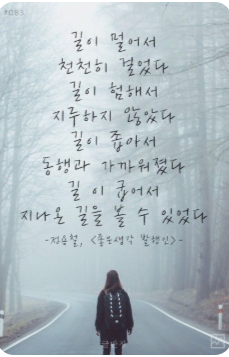 #083
길이 멀어서
천천히 걸었다
길이 험해서
지루하지 않았다
길이 좁아서
동행과 가까워졌다
길이 굽어서
지나온 길을 볼 수 있었다
-정순철, <좋은생각 발행인>-